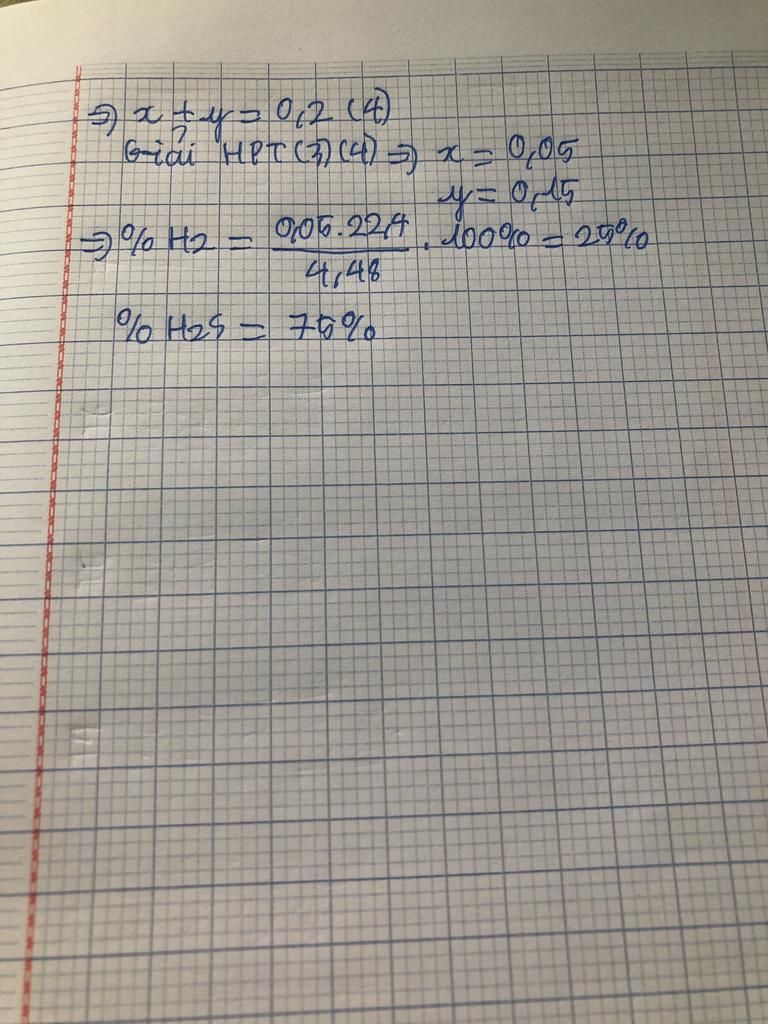 => x + y = 0,2 (4)
Giải HPT (3) (4) => x = 0,05
y = 0,15
=> % H2 = 0,05.22,4 / 4,48 . 100% = 25%
% H2S = 75%